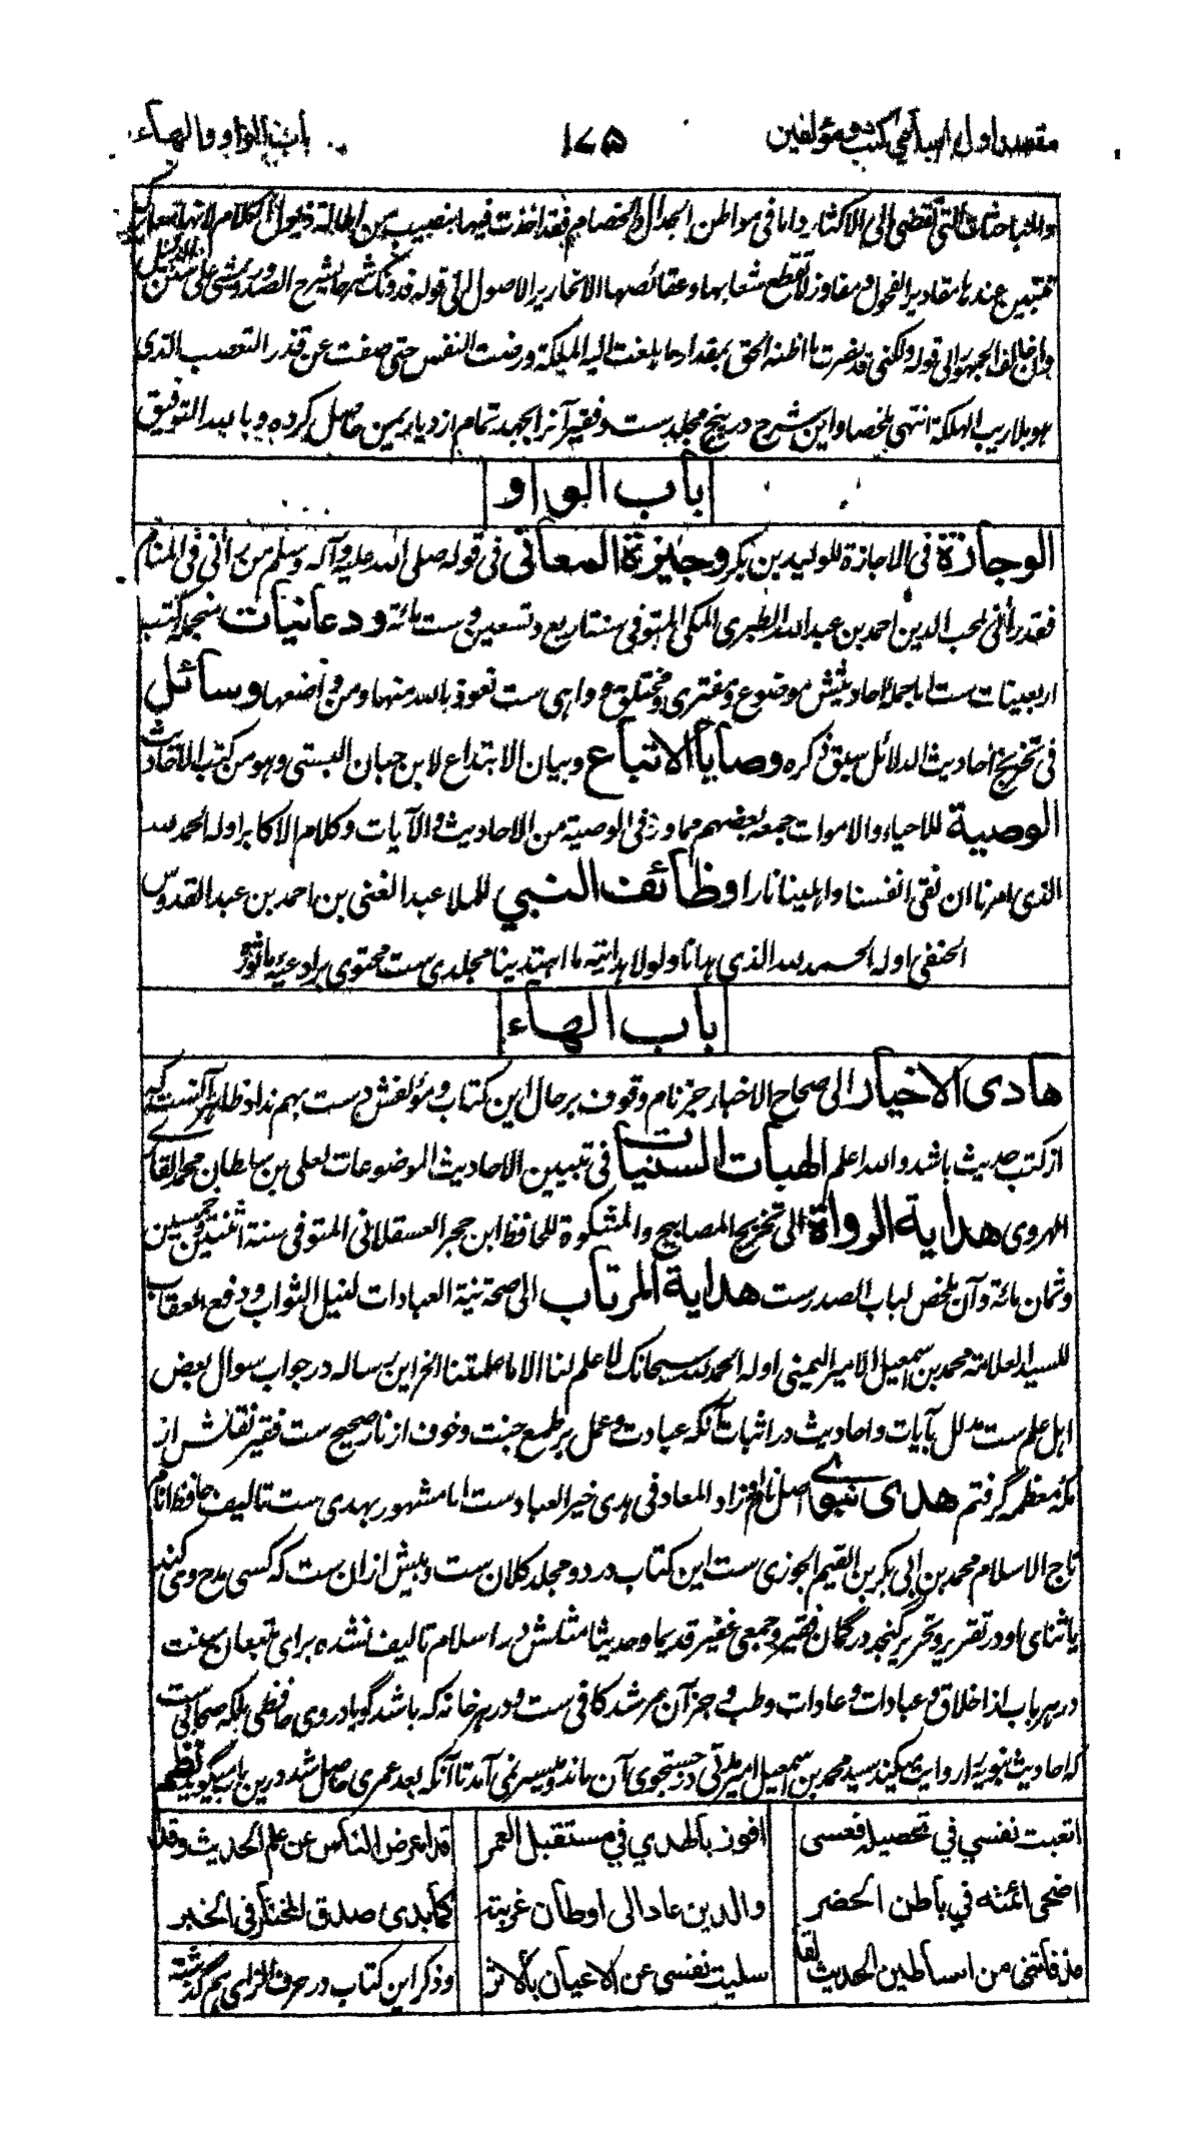 مقصد اول اسامی کتب و مؤلفین ۱۷۵ باب الواو والهاء
والمباحثات التی تفضی الی الاکثار واما فی مواطن الجدال والخصام فقد اخذت فیها بنصیب من اطالة ذیول الکلام لانها معارک
تتبین عندها مقادیر الفحول ومفاوز لا تقطع شعابها وعقائصها الا نحاریر الاصول الی قوله فدونک شرحا یشرح الصدور ویمشی علی سنن الدلیل
وان خالف الجمهور الی قوله ولکنی قد نصرت ما اظنه الحق بمقدار ما بلغت الیه الملکة ورضت النفس حتی صفت عن قذر التعصب الذی
هو بلا ریب الهلکة انتهی ملخصا واین شرح در پنج مجلد ست وفقیر آنرا بجهد تمام از دیار یمن حاصل کرده وبالله التوفیق
باب الواو
الوجازة فی الاجازة للولید بن بکر وجیزة المعانی فی قوله صلی الله علیه وآله وسلم من رأنی فی المنام
فقد رأنی لمحب الدین احمد بن عبد الله الطبری المکی المتوفی سنة اربع وتسعین وست مائة ودعانیات منجمله کتب
اربعینات ست اما جمله احادیثش موضوع ومفتری ومختلق وواهی ست نعوذ بالله منها ومن واضعها وسائل
فی تخریج احادیث الدلائل سبق ذکره وصایا الاتباع وبیان الابتداع لابن حبان البستی وهو من کتب الاحادیث
الوصیة للاحیاء والاموات جمعه بعضهم مما ورد فی الوصیة من الاحادیث والآیات وکلام الاکابر اوله الحمد لله
الذی امرنا ان نقی انفسنا واهلینا نارا وظائف النبی للملا عبد الغنی بن احمد بن عبد القدوس
الحنفی اوله الحمد لله الذی هدانا ولولا هدایته ما اهتدینا مجلدی ست محتوی بر ادعیهٔ ماثوره
باب الهاء
هادی الاخیار الی صحاح الاخبار جز نام وقوف بر حال این کتاب ومؤلفش دست بهم نداد ظاهر آنست که
از کتب حدیث باشد والله اعلم الهبات السنیات فی تبیین الاحادیث الموضوعات لعلی بن سلطان محمد القاری
الهروی هدایة الرواة الی تخریج المصابیح والمشکوة للحافظ ابن حجر العسقلانی المتوفی سنة اثنتین وخمسین
وثمان مائة وآن ملخص لباب الصدر ست هدایة المرتاب الی صحة نیة العبادات لنیل الثواب ودفع العقاب
للسید العلامة محمد بن اسمعیل الامیر الیمنی اوله الحمد لله سبحانک لا علم لنا الا ما علمتنا الخ این رساله در جواب سوال بعض
اهل علم ست مدلل بآیات واحادیث در اثبات آنکه عبادت وعمل بر طمع جنت وخوف از نار صحیح ست فقیر نقلش از
مکه معظمه گرفتم هدی نبوی اصل نام او زاد المعاد فی هدی خیر العباد ست اما مشهور بهدی ست تالیف حافظ امام
تاج الاسلام محمد بن ابی بکر بن القیم الجوزی ست این کتاب در دو مجلد کلان ست وبیش ازان ست که کسی مدح وی کند
یا ثنای او در تقریر وتحریر گنجد در گمان فقیر وجمعی غفیر قدیما وحدیثا مثلش در اسلام تالیف نشده برای متبعان سنت
در هر باب از اخلاق وعبادات وعادات وطب وجز آن مرشد کافی ست ودر هر خانه که باشد گویا دروی حافظی بلکه صحابی ست
که احادیث نبویه را روایت میکند سید محمد بن اسمعیل امیر مدتی در جستجوی آن ماند ومیسر نمی آمد تا آنکه بعد عمری حاصل شد درین باب میگوید نظم
اتعبت نفسی فی تحصیله فعسی افوز بالهدی فی مستقبل العمر قد اعرض الناس عن علم الحدیث وقد
اضحی ائمته فی باطن الحضر والدین عاد الی اوطان غربته کما بدی صدق المختار فی الخبر
مذ فاتنی من اساطین الحدیث لقا سلیت نفسی عن الاعیان بالاثر وذکر این کتاب در حرف الزای هم گذشته